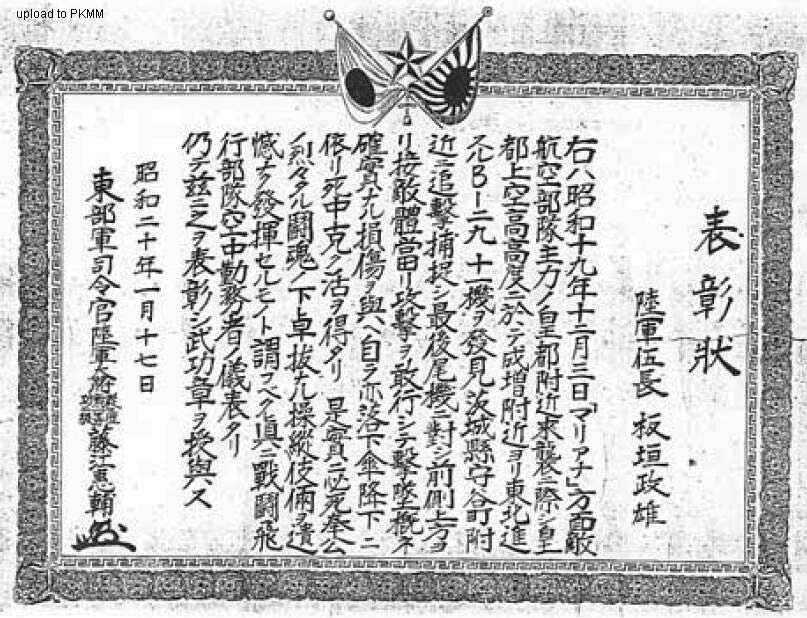 upload to PKMM
表彰狀
陸軍伍長 板垣政雄
右ハ昭和十九年十二月三日「マリアナ」方面敵
航空部隊主力ノ皇都附近來襲ニ際シ皇
都上空高高度ニ於テ成增附近ヨリ東北進
スルB-二九 十一機ヲ發見茨城縣守谷町附
近ニ追擊捕捉シ最後尾機ニ對シ前側上方ヨ
リ接敵體當リ攻擊ヲ敢行シテ擊墜概ネ
確實ナル損傷ヲ與ヘ自ラ亦落下傘降下ニ
依リ死中克ク活ヲ得タリ 是實ニ必死奉公
ノ烈々タル鬪魂ノ下卓拔ナル操縱伎倆ヲ遺
憾ナク發揮セルモノト謂フヘク眞ニ戰鬪飛
行部隊空中勤務者ノ儀表タリ
仍テ茲ニ之ヲ表彰シ武功章ヲ授與ス
昭和二十年一月十七日
東部軍司令官陸軍大將 藤江惠輔